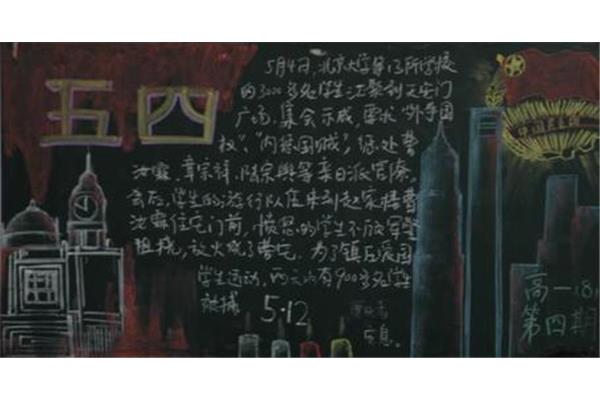 五四
5月4日,北京大学等13所学校
的3000多名学生汇聚到天安门
广场,集会示威,要求"外争国
权","内惩国贼",惩处曹
汝霖,章宗祥,陆宗舆等亲日派官僚。
会后,学生的游行队伍来到赵家楼曹
汝霖住宅门前,愤怒的学生不顾军警
阻挠,放火烧了曹宅。为了镇压爱国
学生运动,两天内有900多名学生
被捕
5.12
息。
高一18
第四期